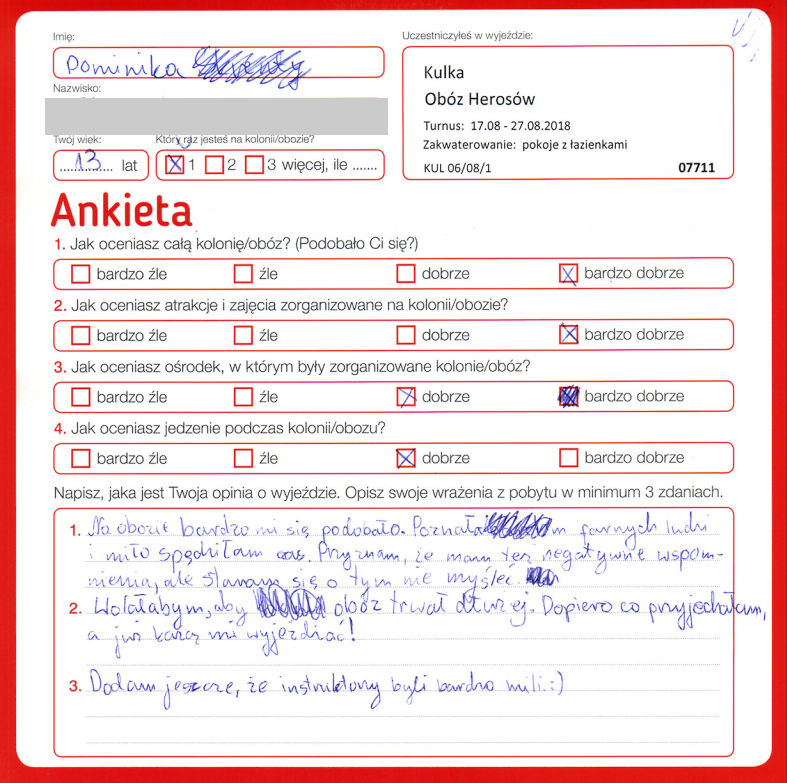 Imię:
Uczestniczyłeś w wyjeździe:
Dominika
Nazwisko:
Kulka
Obóz Herosów
Turnus: 17.08 - 27.08.2018
Zakwaterowanie: pokoje z łazienkami
KUL 06/08/1 07711
Twój wiek: Który raz jesteś na kolonii/obozie?
13 lat 1 2 3 więcej, ile .......
Ankieta
1. Jak oceniasz całą kolonię/obóz? (Podobało Ci się?)
bardzo źle źle dobrze bardzo dobrze
2. Jak oceniasz atrakcje i zajęcia zorganizowane na kolonii/obozie?
bardzo źle źle dobrze bardzo dobrze
3. Jak oceniasz ośrodek, w którym były zorganizowane kolonie/obóz?
bardzo źle źle dobrze bardzo dobrze
4. Jak oceniasz jedzenie podczas kolonii/obozu?
bardzo źle źle dobrze bardzo dobrze
Napisz, jaka jest Twoja opinia o wyjeździe. Opisz swoje wrażenia z pobytu w minimum 3 zdaniach.
1. Na obozie bardzo mi się podobało. Poznałam fajnych ludzi
i miło spędziłam czas. Przyznam, że mam też negatywne wspom-
nienia, ale staram się o tym nie myśleć.
2. Wolałabym, aby obóz trwał dłużej. Dopiero co przyjechałam,
a już każą mi wyjeżdżać!
3. Dodam jeszcze, że instruktorzy byli bardzo mili. :)